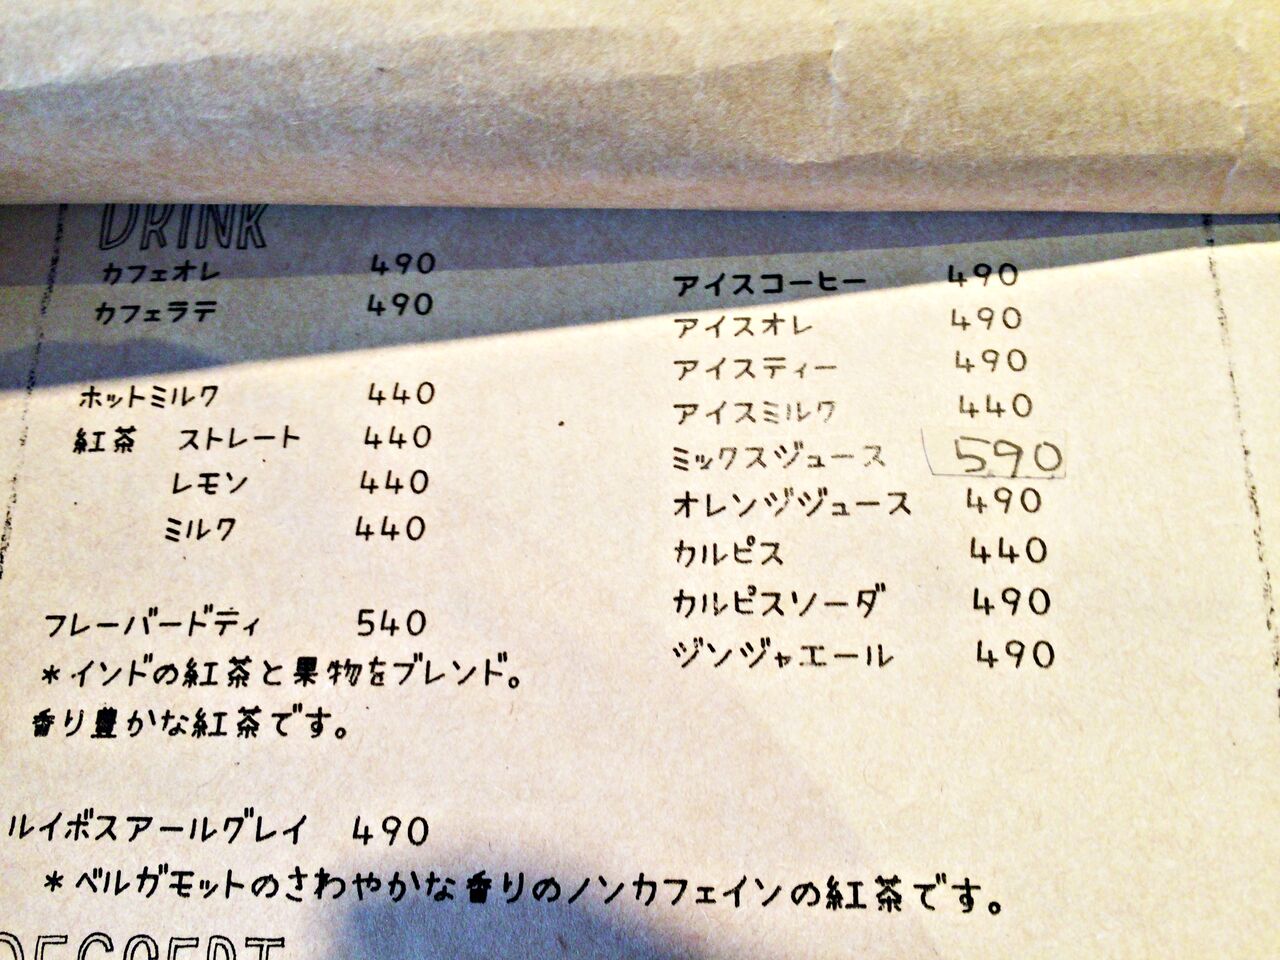 DRINK
カフェオレ 490
カフェラテ 490
ホットミルク 440
紅茶 ストレート 440
レモン 440
ミルク 440
フレーバードティ 540
*インドの紅茶と果物をブレンド。
香り豊かな紅茶です。
アイスコーヒー 490
アイスオレ 490
アイスティー 490
アイスミルク 440
ミックスジュース 590
オレンヅジュース 490
カルピス 440
カルピスソーダ 490
ジンジャエール 490
ルイボスアールグレイ 490
*ベルガモットのさわやかな香りのノンカフェインの紅茶です。
DESSERT